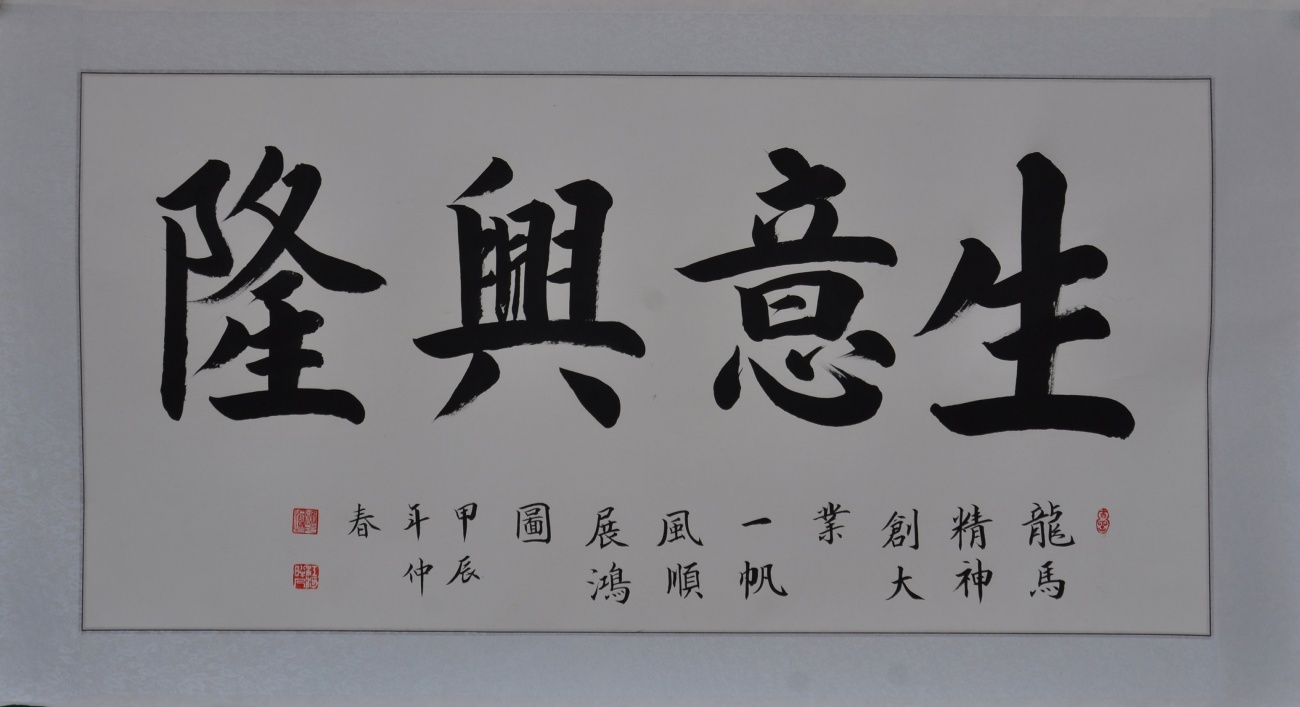 生意興隆
龍馬
精神
創大
業
一帆
風順
展鴻
圖
甲辰
年仲
春